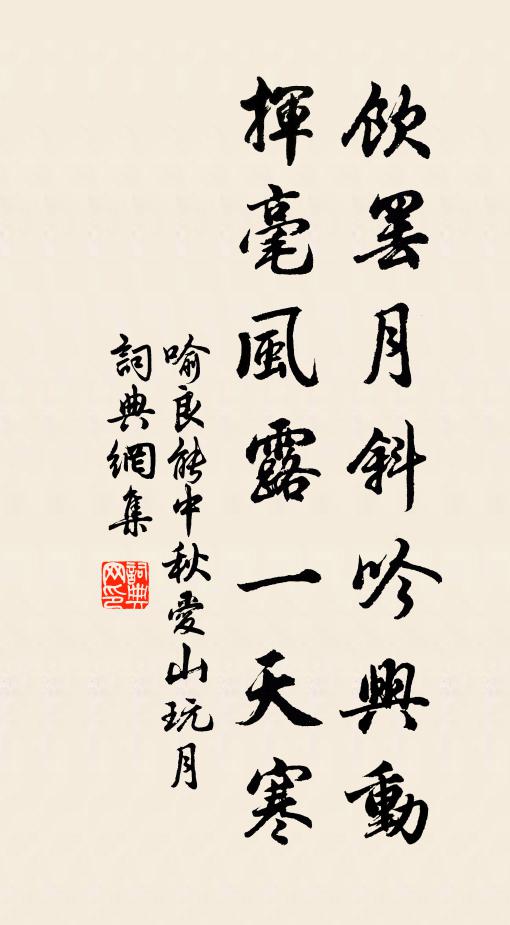 飲罷月斜吟興動
揮毫風露一天寒
喻良能中秋愛山玩月
詞典網集
詞典网印